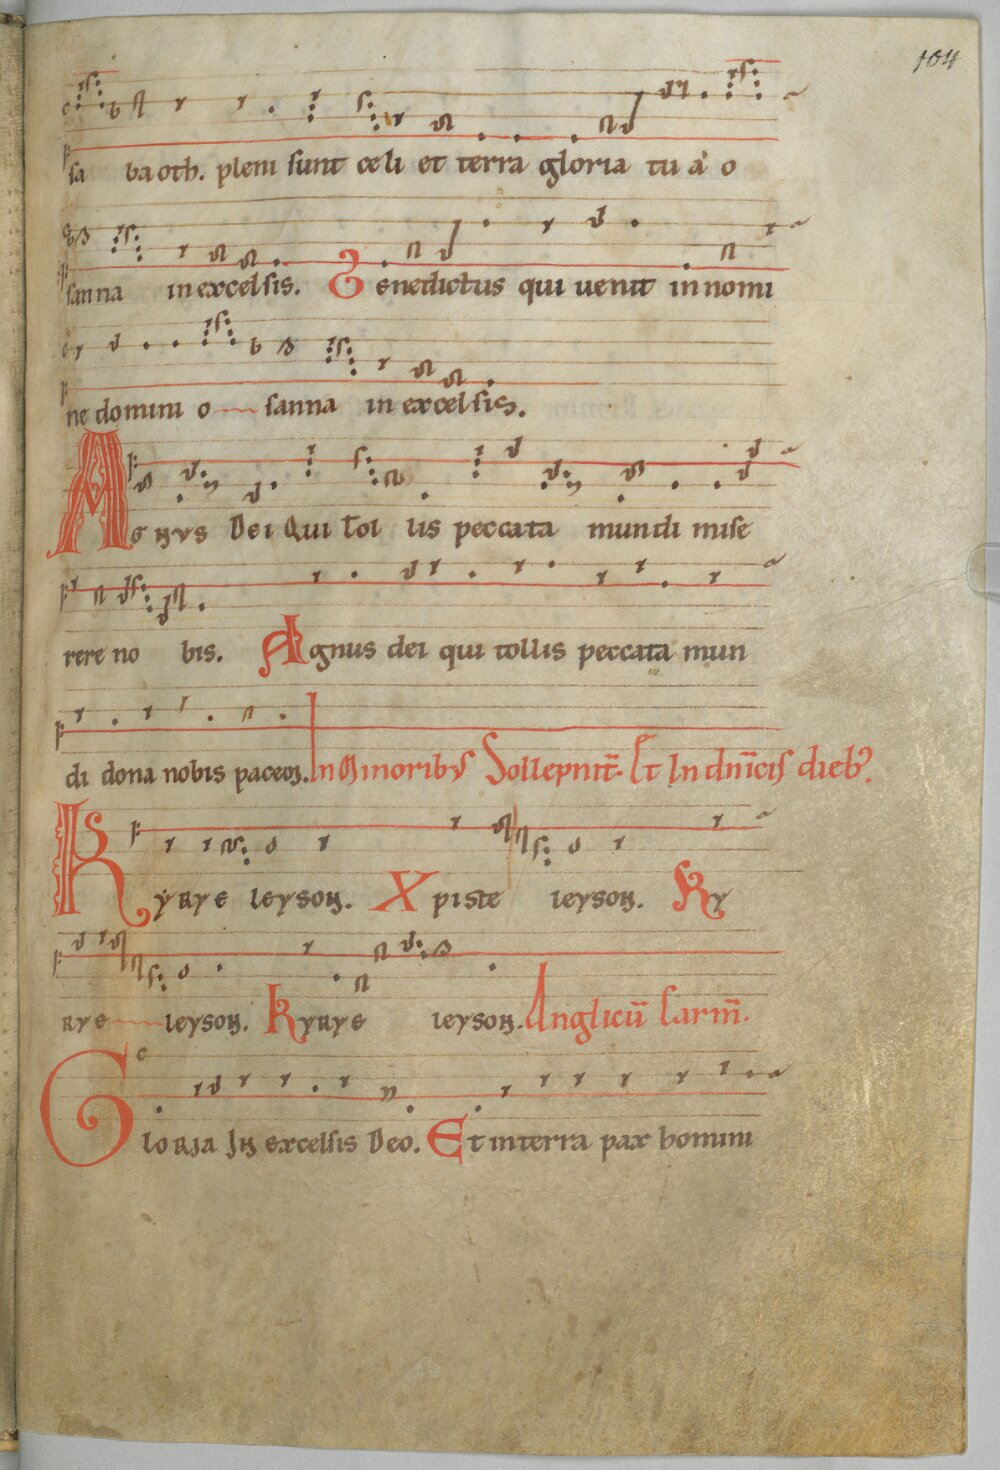 104
sa ba oth. pleni sunt celi et terra gloria tu a o
sanna in excelsis. Benedictus qui uenit in nomi
ne domini o sanna in excelsis.
AGNVS Dei Qui Tol lis peccata mundi mise
rere no bis. Agnus dei qui tollis peccata mun
di dona nobis pacem. In Minoribus Sollepnit̄. Et In dn̄icis dieb⁊.
KYRYE leyson. Xpiste leyson. Ky
RYE leyson. KYRYE leyson. Anglicū Sarm̄.
GLORIA IN excelsis Deo. Et in terra pax homini